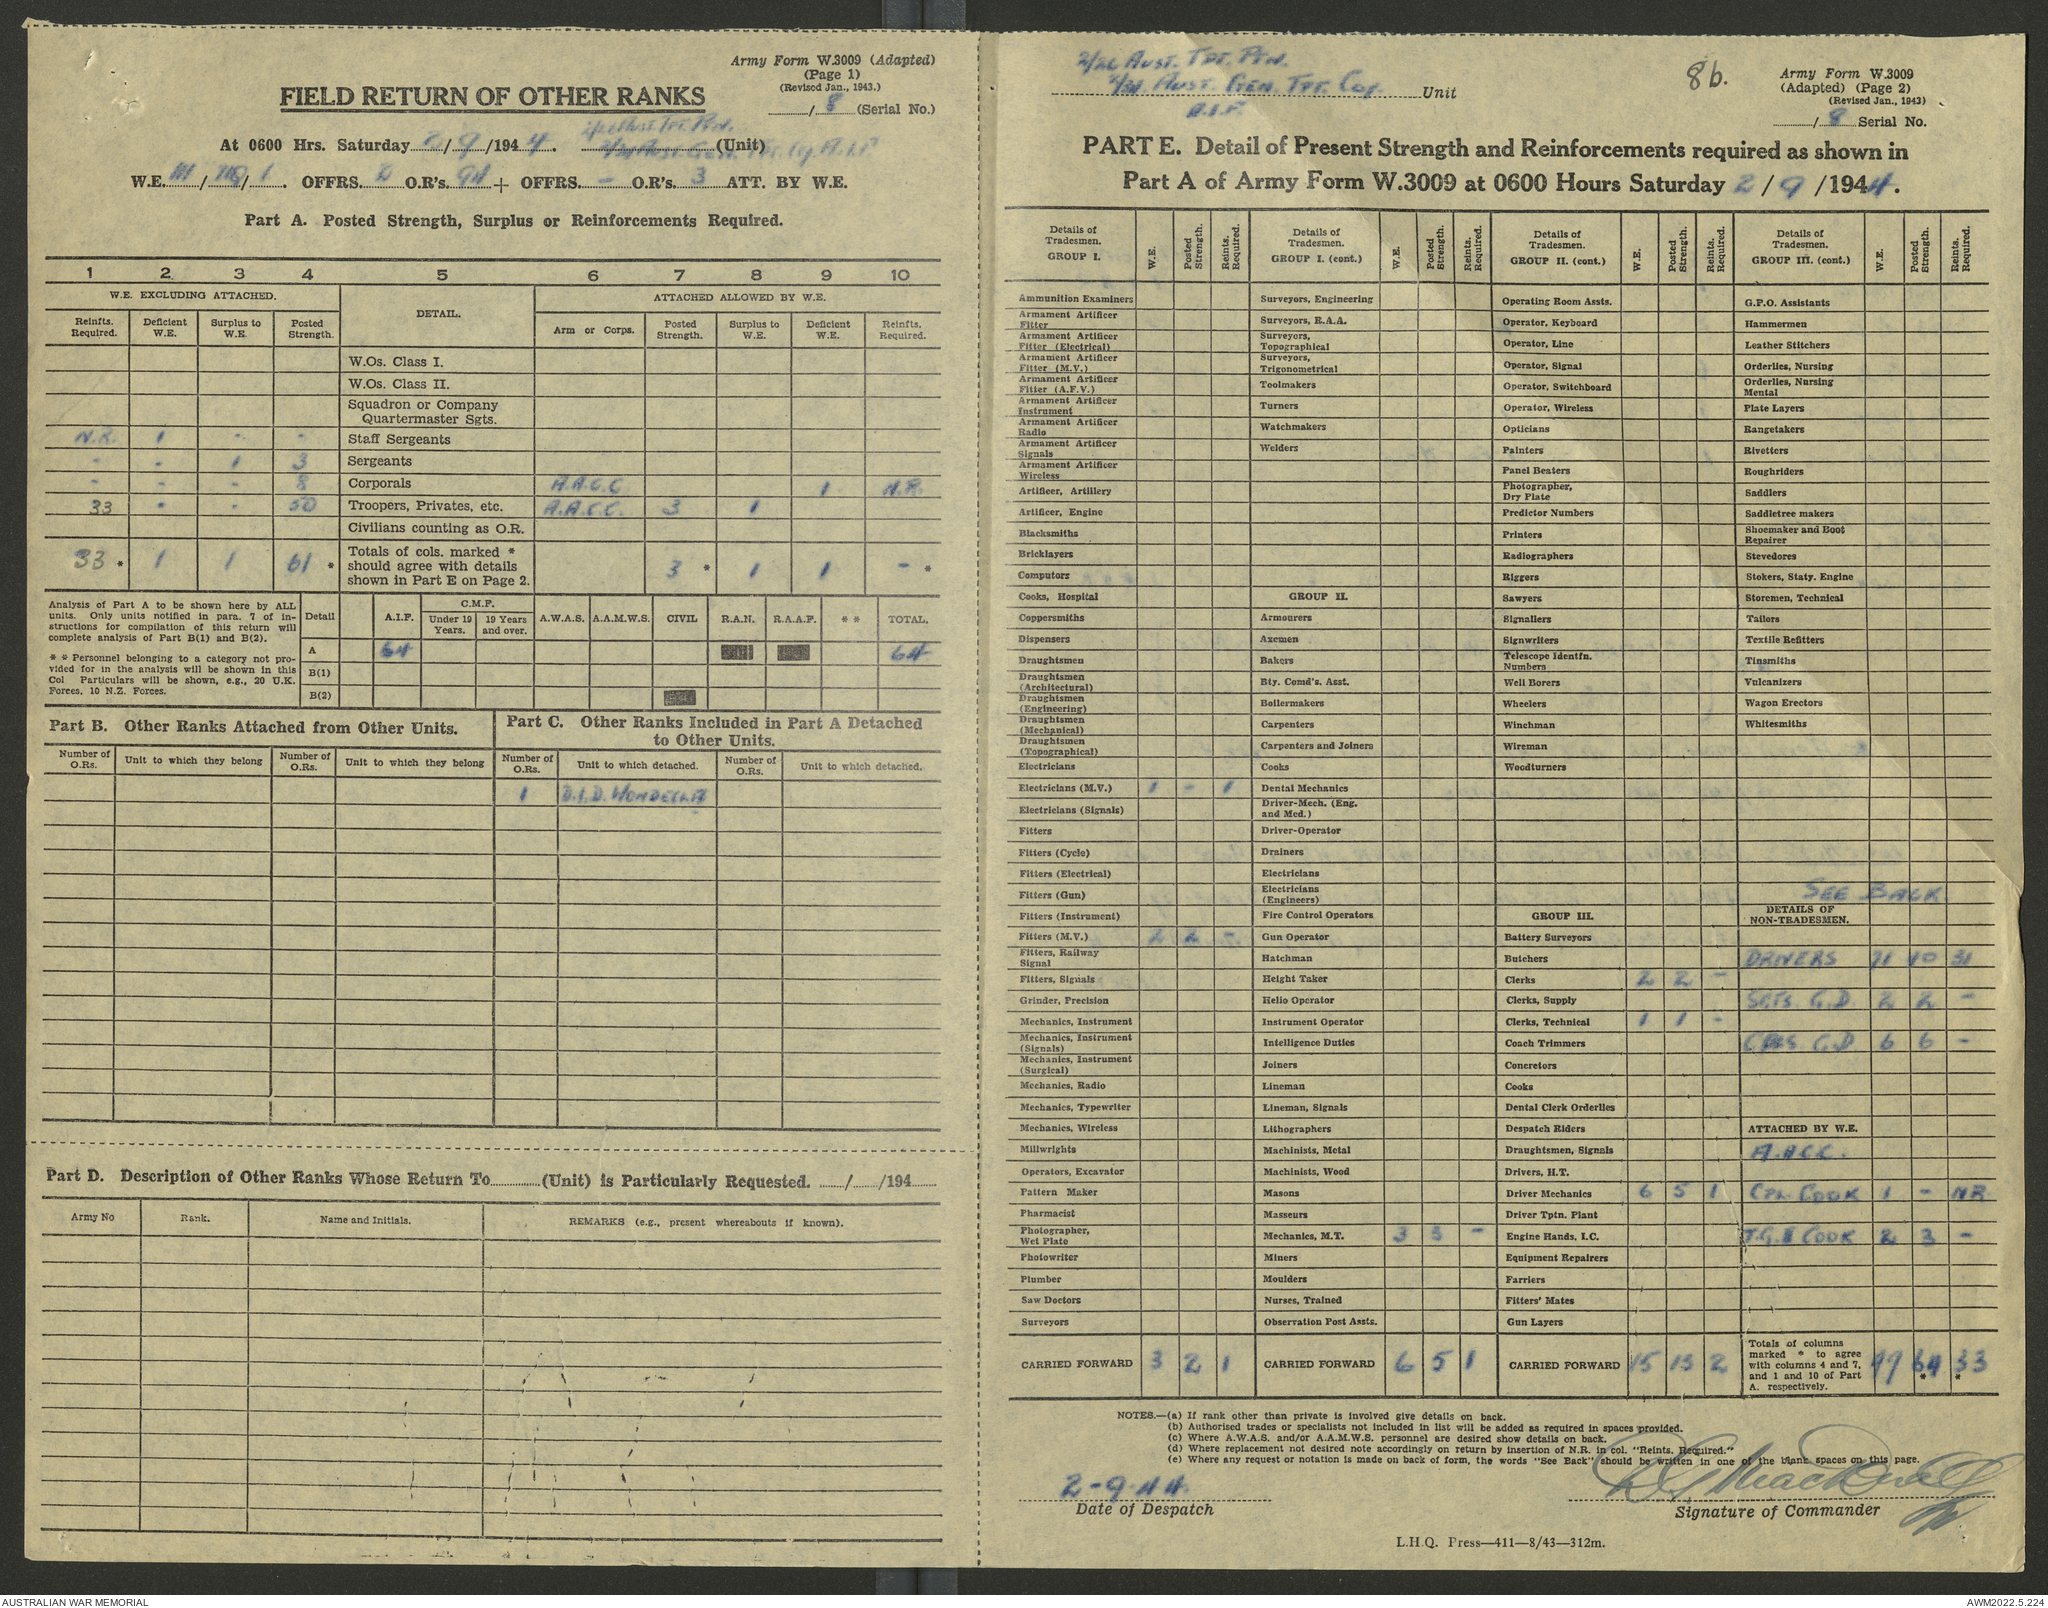 Army Form W.3009 (Adapted)
(Page 1)
(Revised Jan., 1943.)
FIELD RETURN OF OTHER RANKS
/ 8 (Serial No.)
At 0600 Hrs. Saturday 2/9/1944. 2/26 Aust. Tpt. Ptn. (Unit)
W.E. / / 1. OFFRS. O.R's. 94 + OFFRS. - O.R's. 3 ATT. BY W.E.
Part A. Posted Strength, Surplus or Reinforcements Required.
1 2 3 4 5 6 7 8 9 10
W.E. EXCLUDING ATTACHED. DETAIL. ATTACHED ALLOWED BY W.E.
Reinfts. Required. Deficient W.E. Surplus to W.E. Posted Strength. Arm or Corps. Posted Strength. Surplus to W.E. Deficient W.E. Reinfts. Required.
W.Os. Class I.
W.Os. Class II.
Squadron or Company Quartermaster Sgts.
N.R. 1 - - Staff Sergeants
- - 1 3 Sergeants
- - - 8 Corporals A.A.C.C. 1 N.R.
33 - - 50 Troopers, Privates, etc. A.A.C.C. 3 1
Civilians counting as O.R.
33 * 1 1 61 * Totals of cols. marked * should agree with details shown in Part E on Page 2. 3 * 1 1 - *
Analysis of Part A to be shown here by ALL units. Only units notified in para. 7 of instructions for compilation of this return will complete analysis of Part B(1) and B(2).
* * Personnel belonging to a category not provided for in the analysis will be shown in this Col Particulars will be shown, e.g., 20 U.K. Forces, 10 N.Z. Forces.
Detail A.I.F. C.M.F. Under 19 Years. 19 Years and over. A.W.A.S. A.A.M.W.S. CIVIL R.A.N. R.A.A.F. * * TOTAL.
A 64 64
B(1)
B(2)
Part B. Other Ranks Attached from Other Units.
Part C. Other Ranks Included in Part A Detached to Other Units.
Number of O.Rs. Unit to which they belong Number of O.Rs. Unit to which they belong Number of O.Rs. Unit to which detached. Number of O.Rs. Unit to which detached.
1 D.I.D. WONDECLA
Part D. Description of Other Ranks Whose Return To (Unit) is Particularly Requested. / /194
Army No Rank. Name and Initials. REMARKS (e.g., present whereabouts if known).
2/26 AUST. TPT. PTN.
AUST. GEN. TPT. COY. Unit
A.I.F.
8b.
Army Form W.3009
(Adapted) (Page 2)
(Revised Jan., 1943)
/ 8 Serial No.
PART E. Detail of Present Strength and Reinforcements required as shown in
Part A of Army Form W.3009 at 0600 Hours Saturday 2/9/1944.
Details of Tradesmen. GROUP I. W.E. Posted Strength. Reints. Required.
Ammunition Examiners
Armament Artificer Fitter
Armament Artificer Fitter (Electrical)
Armament Artificer Fitter (M.V.)
Armament Artificer Fitter (A.F.V.)
Armament Artificer Instrument
Armament Artificer Radio
Armament Artificer Signals
Armament Artificer Wireless
Artificer, Artillery
Artificer, Engine
Blacksmiths
Bricklayers
Computors
Cooks, Hospital
Coppersmiths
Dispensers
Draughtsmen
Draughtsmen (Architectural)
Draughtsmen (Engineering)
Draughtsmen (Mechanical)
Draughtsmen (Topographical)
Electricians
Electricians (M.V.) 1 - 1
Electricians (Signals)
Fitters
Fitters (Cycle)
Fitters (Electrical)
Fitters (Gun)
Fitters (Instrument)
Fitters (M.V.) 2 2 -
Fitters, Railway Signal
Fitters, Signals
Grinder, Precision
Mechanics, Instrument
Mechanics, Instrument (Signals)
Mechanics, Instrument (Surgical)
Mechanics, Radio
Mechanics, Typewriter
Mechanics, Wireless
Millwrights
Operators, Excavator
Pattern Maker
Pharmacist
Photographer, Wet Plate
Photowriter
Plumber
Saw Doctors
Surveyors
CARRIED FORWARD 3 2 1
Details of Tradesmen. GROUP I. (cont.) W.E. Posted Strength. Reints. Required.
Surveyors, Engineering
Surveyors, R.A.A.
Surveyors, Topographical
Surveyors, Trigonometrical
Toolmakers
Turners
Watchmakers
Welders
GROUP II.
Armourers
Axemen
Bakers
Bty. Comd's. Asst.
Boilermakers
Carpenters
Carpenters and Joiners
Cooks
Dental Mechanics
Driver-Mech. (Eng. and Med.)
Driver-Operator
Drainers
Electricians
Electricians (Engineers)
Fire Control Operators
Gun Operator
Hatchman
Height Taker
Helio Operator
Instrument Operator
Intelligence Duties
Joiners
Lineman
Lineman, Signals
Lithographers
Machinists, Metal
Machinists, Wood
Masons
Masseurs
Mechanics, M.T. 3 3 -
Miners
Moulders
Nurses, Trained
Observation Post Assts.
CARRIED FORWARD 6 5 1
Details of Tradesmen. GROUP II. (cont.) W.E. Posted Strength. Reints. Required.
Operating Room Assts.
Operator, Keyboard
Operator, Line
Operator, Signal
Operator, Switchboard
Operator, Wireless
Opticians
Painters
Panel Beaters
Photographer, Dry Plate
Predictor Numbers
Printers
Radiographers
Riggers
Sawyers
Signallers
Signwriters
Telescope Identfn. Numbers
Well Borers
Wheelers
Winchman
Wireman
Woodturners
GROUP III.
Battery Surveyors
Butchers
Clerks 2 2 -
Clerks, Supply
Clerks, Technical 1 1 -
Coach Trimmers
Concretors
Cooks
Dental Clerk Orderlies
Despatch Riders
Draughtsmen, Signals
Drivers, H.T.
Driver Mechanics 6 5 1
Driver Tptn. Plant
Engine Hands, I.C.
Equipment Repairers
Farriers
Fitters' Mates
Gun Layers
CARRIED FORWARD 15 13 2
Details of Tradesmen. GROUP III. (cont.) W.E. Posted Strength. Reints. Required.
G.P.O. Assistants
Hammermen
Leather Stitchers
Orderlies, Nursing
Orderlies, Nursing Mental
Plate Layers
Rangetakers
Rivetters
Roughriders
Saddlers
Saddletree makers
Shoemaker and Boot Repairer
Stevedores
Stokers, Staty. Engine
Storemen, Technical
Tailors
Textile Refitters
Tinsmiths
Vulcanizers
Wagon Erectors
Whitesmiths
SEE BACK
DETAILS OF NON-TRADESMEN.
DRIVERS 71 40 31
SGTS. G.D. 2 2 -
CPLS. G.D 6 6 -
ATTACHED BY W.E.
A.A.C.C.
CPL. COOK 1 - NR
T.G.II COOK 2 3 -
Totals of columns marked * to agree with columns 4 and 7, and 1 and 10 of Part A. respectively. 97 64 * 33 *
NOTES.—(a) If rank other than private is involved give details on back.
(b) Authorised trades or specialists not included in list will be added as required in spaces provided.
(c) Where A.W.A.S. and/or A.A.M.W.S. personnel are desired show details on back.
(d) Where replacement not desired note accordingly on return by insertion of N.R. in col. "Reints. Required."
(e) Where any request or notation is made on back of form, the words "See Back" should be written in one of the blank spaces on this page.
2-9-44.
Date of Despatch
Signature of Commander
L.H.Q. Press—411—8/43—312m.
AUSTRALIAN WAR MEMORIAL
AWM2022.5.224